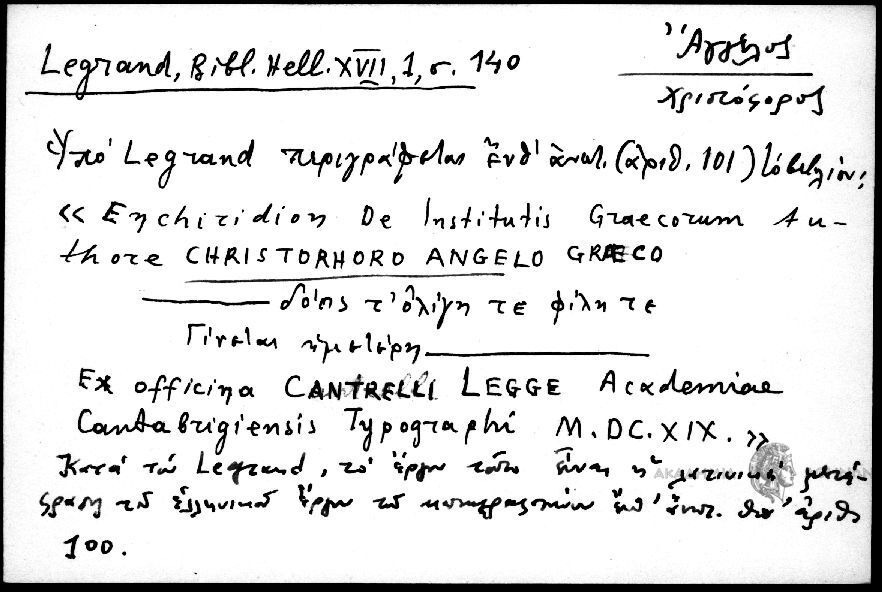 Legrand, Bibl. Hell. XVII, 1, σ. 140
Ἄγγελος
Χριστόφορος
Ὑπό Legrand περιγράφεται (ἀριθ. 101) τό βιβλίον:
« Enchiridion De Institutis Graecorum Au-
thore CHRISTORHORO ANGELO GRÆCO
δόσις τ' ὀλίγη τε φίλη τε
Γίνεται ἡμετέρη
Ex officina CANTRELLI LEGGE Academiae
Cantabrigiensis Typographi M.DC.XIX. »
Κατά τόν Legrand, τό ἔργον τοῦτο εἶναι ἡ λατινική μετά-
φραση τοῦ ἑλληνικοῦ ἔργου τοῦ ἀριθ
100.